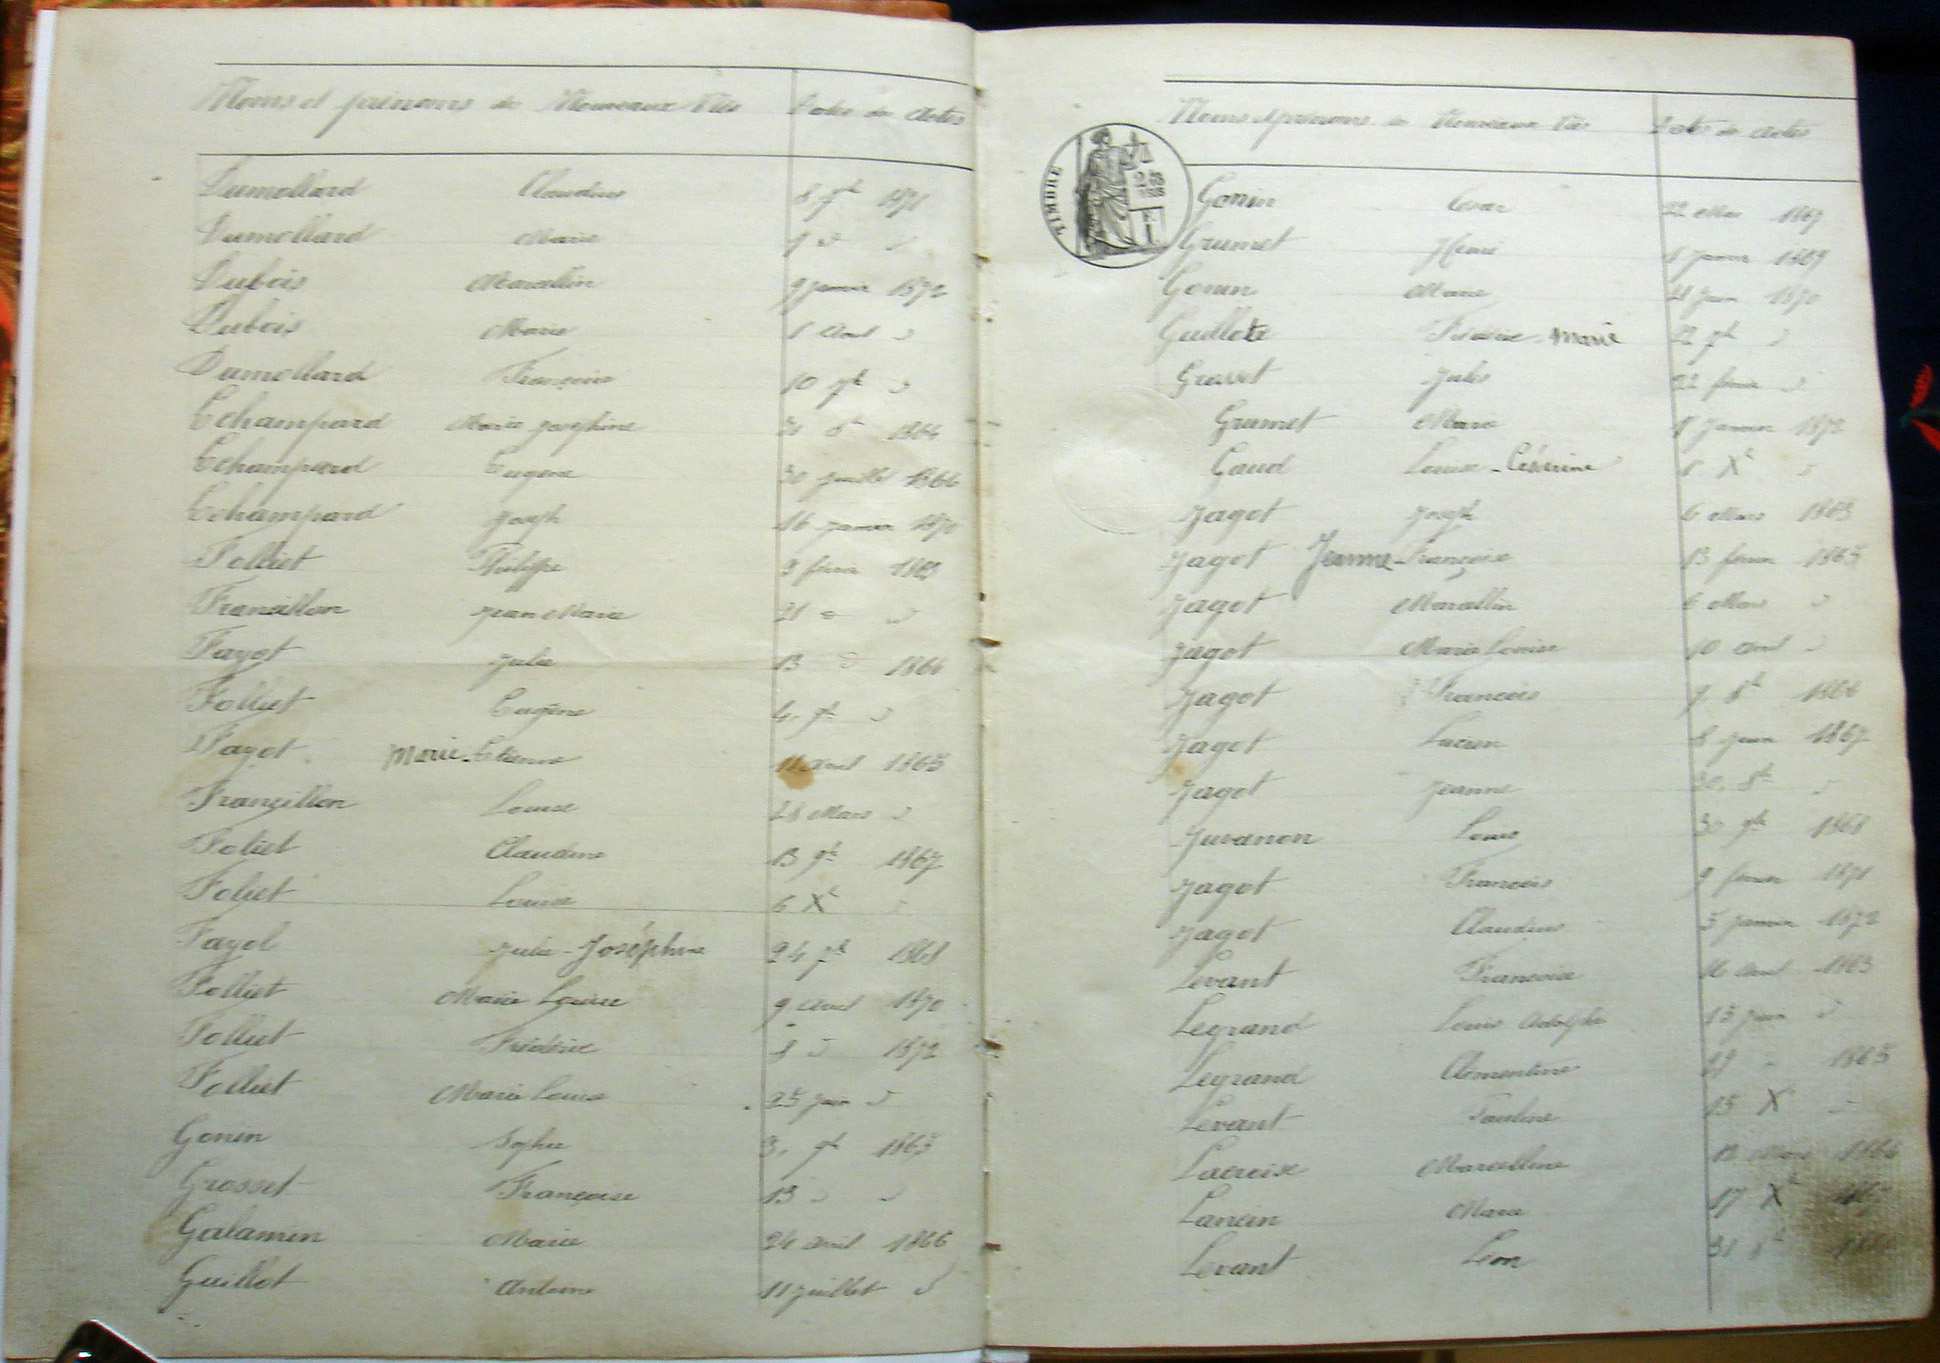 Noms et prénoms des Nouveaux Nés Dates des Actes
Dumollard Claudius 8 7bre 1871
Dumollard Marie
Dubois Marcellin 9 janvier 1872
Dubois Marie 1 Avril "
Dumollard François 10 "
Echampard Marie Joséphine 1864
Echampard Eugène 30 juillet 1866
Echampard Joseph 16 janvier 1870
Folliet Philippe 9 février 1863
Francillon Jean Marie 21 " "
Fayot Julie 13 " 1864
Folliet Eugène "
Fayot Marie-Etienne 11 avril 1865
Françillon Louise 28 Mars "
Foliet Claudine 13 1867
Foliet Louise 6 Xe "
Fayol Julie-Joséphine 24 1868
Folliet Marie Louise 9 avril 1870
Folliet Frédéric 8 " 1872
Folliet Marie Louise 25 juin "
Gonin Sophie 1865
Grosset Françoise 13 " "
Galamin Marie 24 avril 1866
Guillot Antoine 11 juillet "
Noms et prénoms des Nouveaux Nés Dates des Actes
TIMBRE
Gonin César 22 Mai 1867
Grumet Henri janvier 1869
Gonin Marie 21 juin 1870
Guillot Frédéric-Marie 22 "
Grosset Jules 22 février "
Grumet Marie janvier 1872
Gaud Louise-Césarine Xe "
Jagot Joseph 6 Mars 1863
Jagot Jeanne-Françoise 13 février 1865
Jagot Marcellin 6 Mars "
Jagot Marie Louise 10 avril "
Jagot François 7 8bre 1866
Jagot Lucien 8 juin 1867
Jagot Jeanne 30 8bre "
Juvanon Louis 30 1868
Jagot François 9 février 1871
Jagot Claudius 5 janvier 1872
Levant Françoise 16 avril 1863
Legrand Louis Adolphe 15 juin "
Legrand Clémentine " 1865
Levant Pauline 15 X "
Lacroix Marcelline 12 Mars 1866
Lancin Marie 17 Xe
Levant Léon 31